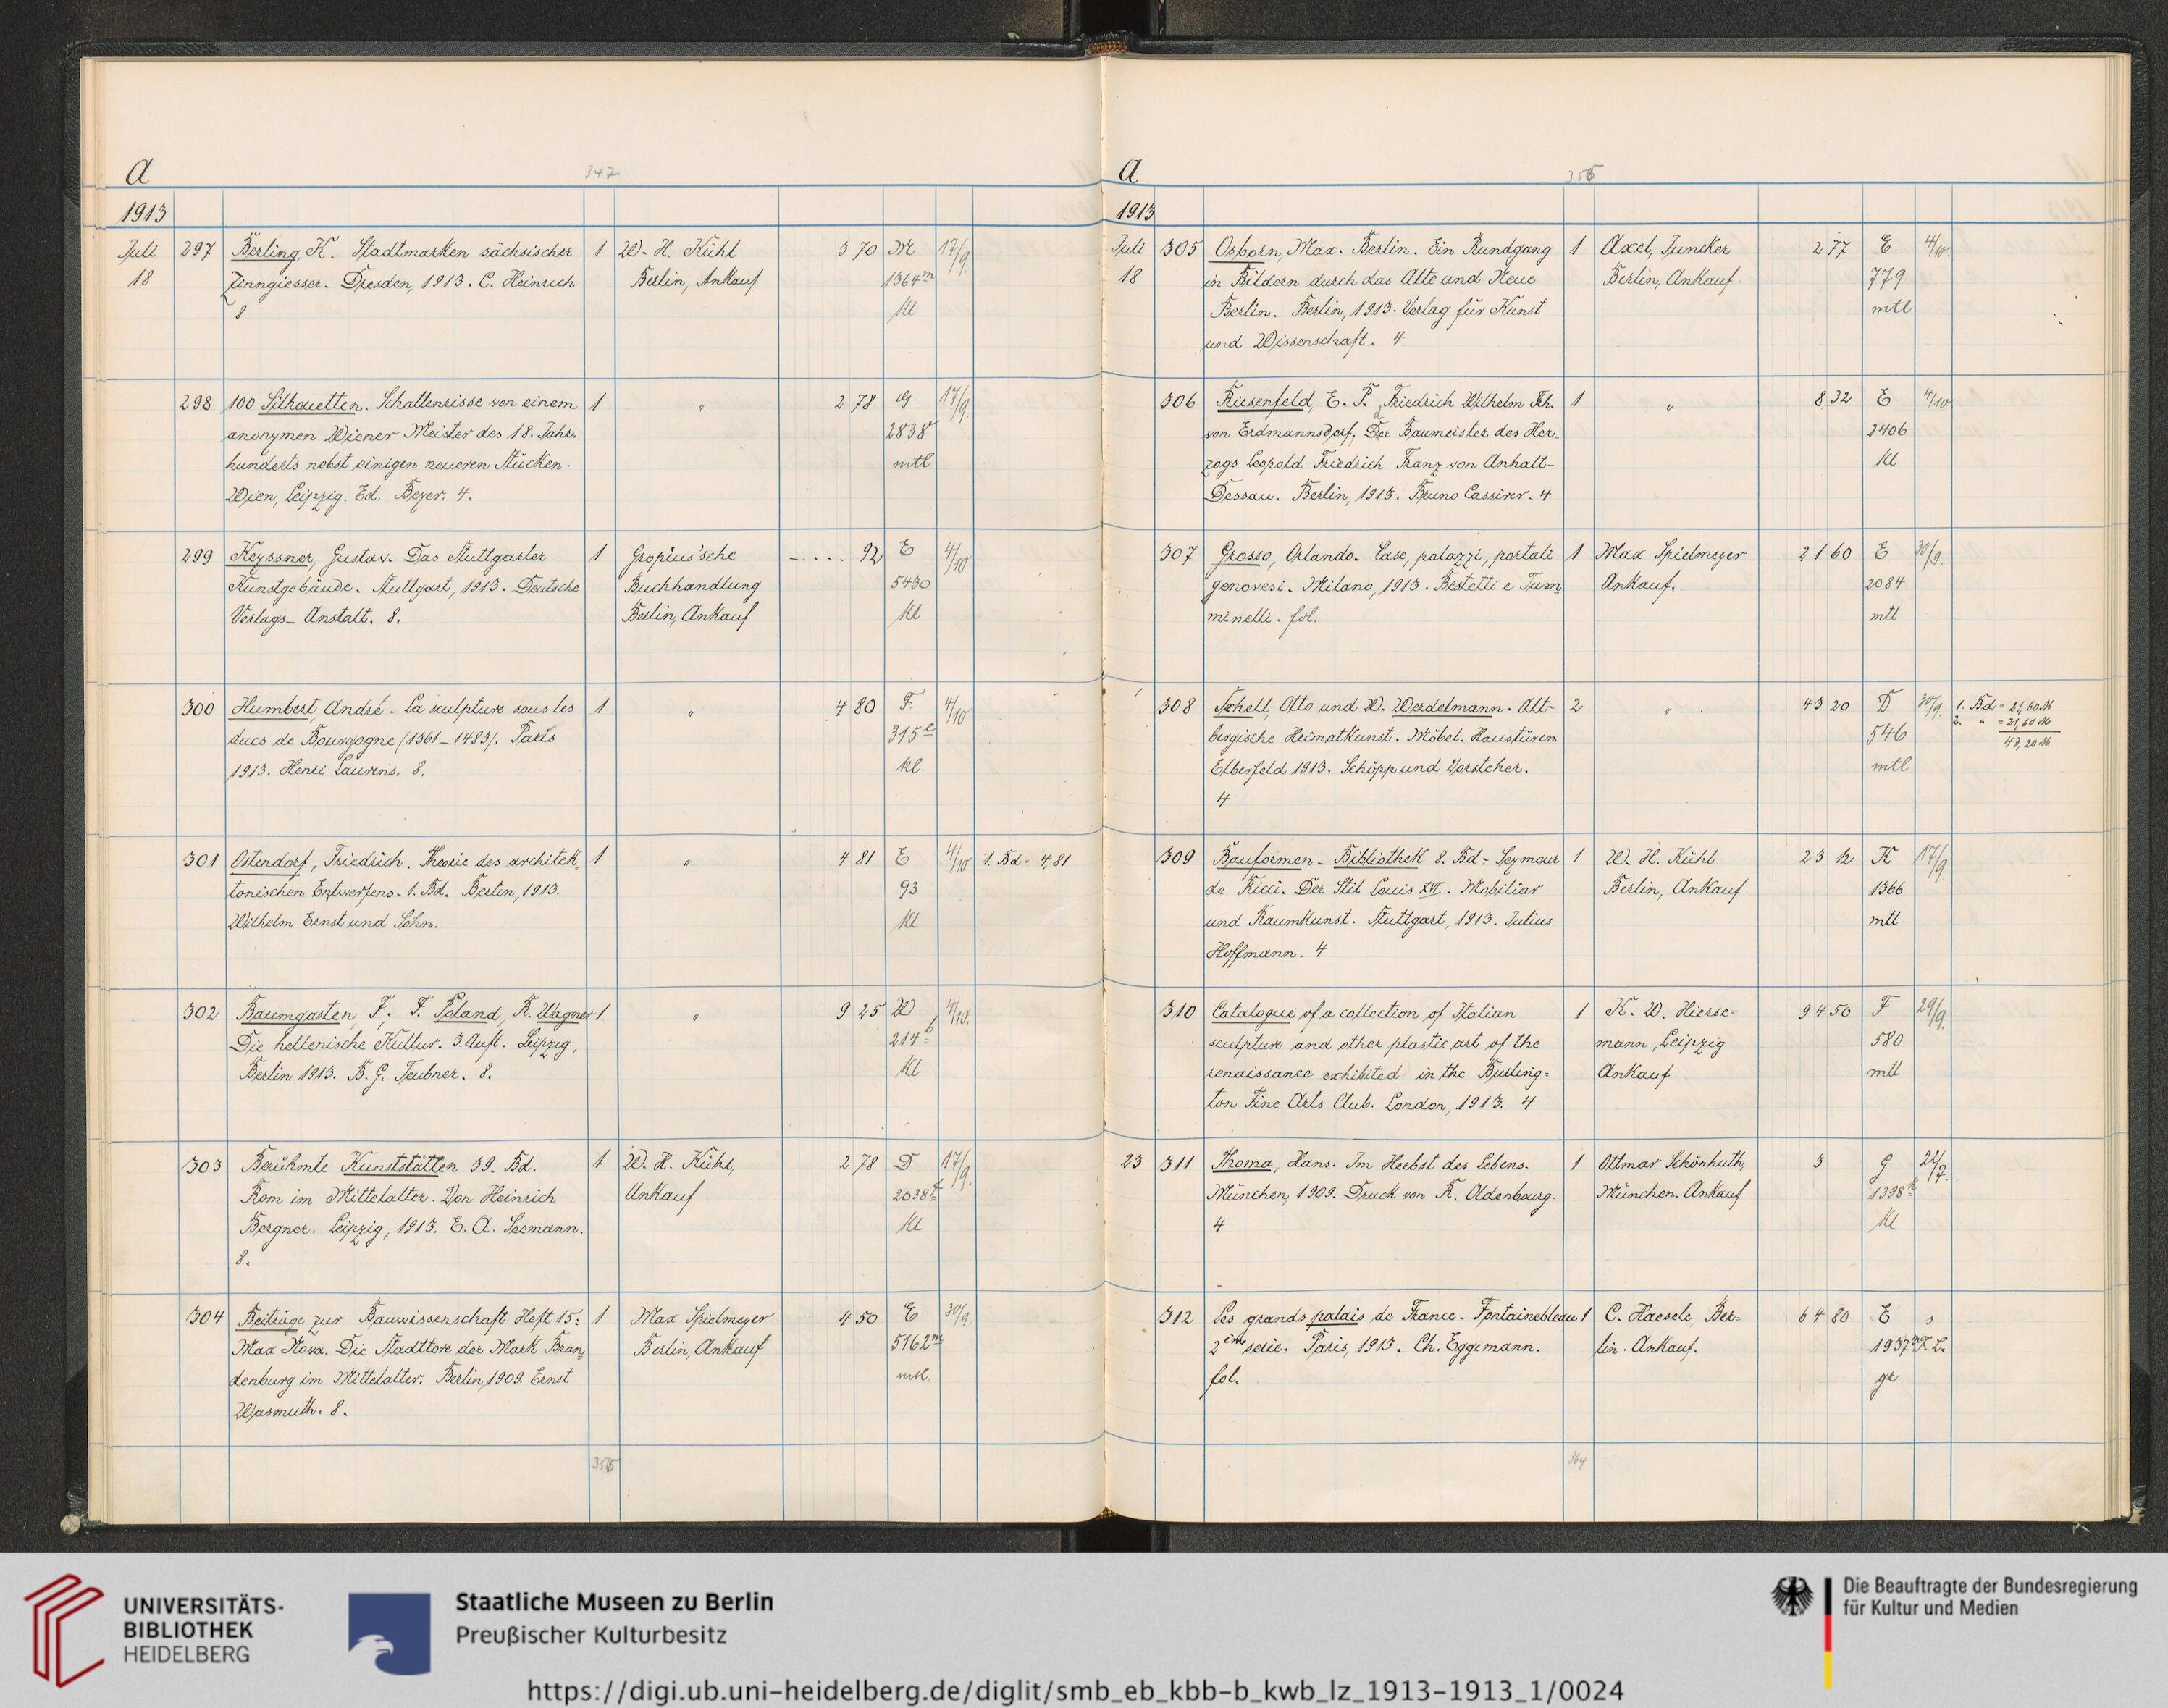 A
347
1913
Juli 297 Berling, K. Stadtmarken sächsischer 1 W. H. Kühl 3 70 17/9.
18 Zinngiesser. Dresden, 1913. C. Heinrich Berlin, Ankauf 1364m
8 kl
298 100 Silhouetten. Schattenrisse von einem 1 " 2 78 G 17/9.
anonymen Wiener Meister des 18. Jahr- 2838
hunderts nebst einigen neueren Stücken. mtl
Wien, Leipzig. Ed. Beyer. 4.
299 Keyssner, Gustav. Das Stuttgarter 1 Gropius'sche –.... 92 E 4/10
Kunstgebäude. Stuttgart, 1913. Deutsche Buchhandlung 5430
Verlags-Anstalt. 8. Berlin, Ankauf kl
300 Humbert, André. La sculpture sous les 1 " 4 80 F. 4/10
ducs de Bourgogne (1361–1483). Paris 315e
1913. Henri Laurens. 8. kl.
301 Ostendorf, Friedrich. Theorie des architek- 1 " 4 81 E 4/10 1. Bd = 4,81
tonischen Entwerfens. 1. Bd. Berlin, 1913. 93
Wilhelm Ernst und Sohn. kl
302 Baumgarten, F., F. Poland, R. Wagner 1 " 9 25 W 4/10.
Die hellenische Kultur. 3. Aufl. Leipzig, 214b
Berlin 1913. B. G. Teubner. 8. kl
303 Berühmte Kunststätten 39. Bd. 1 W. H. Kühl, 2 78 D 17/9.
Rom im Mittelalter. Von Heinrich Ankauf 2038
Bergner. Leipzig, 1913. E. A. Seemann. kl
8.
304 Beiträge zur Bauwissenschaft Heft 15: 1 Max Spielmeyer 4 50 E 30/9.
Max Nova. Die Stadttore der Mark Bran- Berlin, Ankauf 5162m
denburg im Mittelalter. Berlin, 1909. Ernst mtl.
Wasmuth. 8.
A
1913
Juli 305 Osborn, Max. Berlin. Ein Rundgang 1 Axel, Juncker 2 77 E 4/10.
18 in Bildern durch das Alte und Neue Berlin, Ankauf 779
Berlin. Berlin, 1913. Verlag für Kunst mtl
und Wissenschaft. 4
306 Riesenfeld, E. P. Friedrich Wilhelm Frh. 1 " 8 32 E 4/10
von Erdmannsdorf, Der Baumeister des Her- 2406
zogs Leopold Friedrich Franz von Anhalt- kl
Dessau. Berlin, 1913. Bruno Cassirer. 4
307 Grosso, Orlando. Case, palazzi, portali 1 Max Spielmeyer 21 60 E 30/9.
genovesi. Milano, 1913. Bestetti e Tum- Ankauf. 2084
minelli. fol. mtl
308 Schell, Otto und W. Werdelmann. Alt- 2 " 43 20 D 30/9. 1. Bd = 21,60 M
bergische Heimatkunst. Möbel. Haustüren 546 2. " = 21,60 M
Elberfeld 1913. Schöpp und Vorsteher. mtl 43,20 M
4
309 Bauformen-Bibliothek 8. Bd: Seymour 1 W. H. Kühl 23 12 K 17/9
de Ricci. Der Stil Louis XVI. Mobiliar Berlin, Ankauf 1366
und Raumkunst. Stuttgart, 1913. Julius mtl
Hoffmann. 4
310 Catalogue of a collection of Italian 1 K. W. Hierse- 94 50 F 29/9.
sculpture and other plastic art of the mann, Leipzig 580
renaissance exhibited in the Burling- Ankauf mtl
ton Fine Arts Club. London, 1913. 4
23 311 Thoma, Hans. Im Herbst des Lebens. 1 Ottmar Schönhuth, 3 G 22/7.
München, 1909. Druck von R. Oldenbourg. München. Ankauf 1398
4 kl
312 Les grands palais de France. Fontainebleau 1 C. Haesele, Ber- 64 80 E
2ème serie. Paris, 1913. Ch. Eggimann. lin. Ankauf. 1937
fol. gr
364
UNIVERSITÄTS-
BIBLIOTHEK
HEIDELBERG
Staatliche Museen zu Berlin
Preußischer Kulturbesitz
Die Beauftragte der Bundesregierung
für Kultur und Medien
https://digi.ub.uni-heidelberg.de/diglit/smb_eb_kbb-b_kwb_lz_1913-1913_1/0024